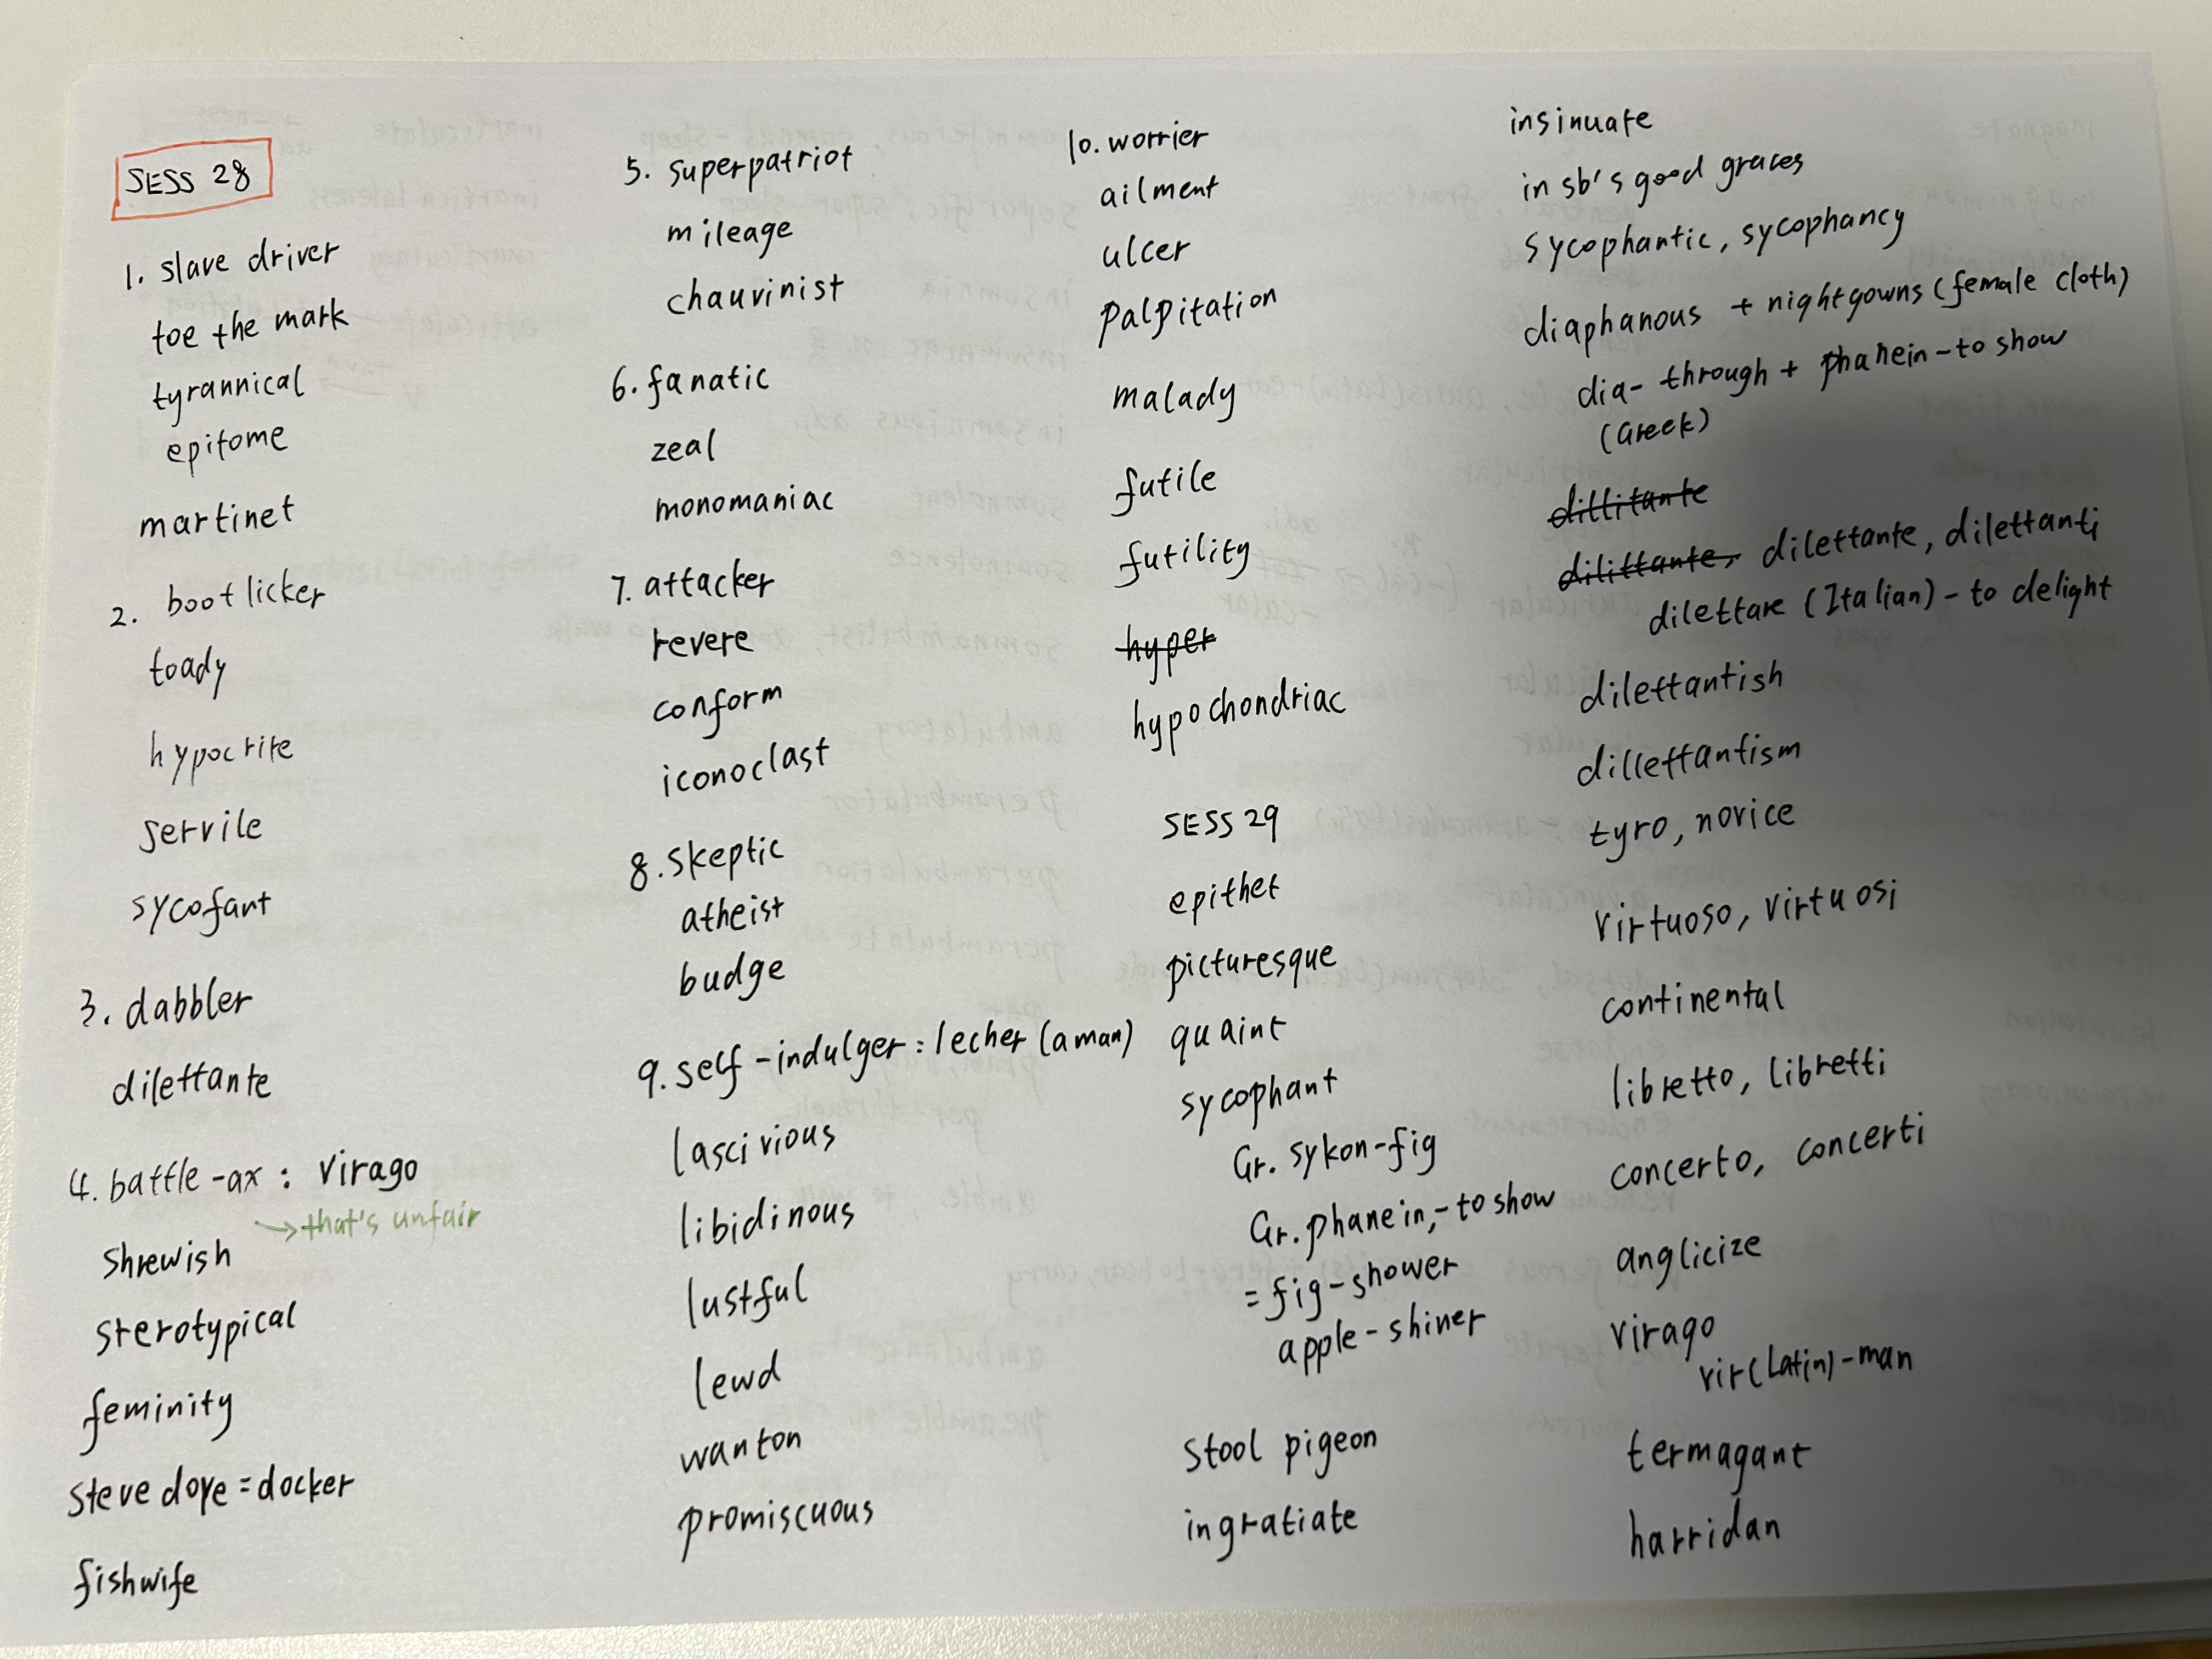 SESS 28
1. slave driver
toe the mark
tyrannical
epitome
martinet
2. bootlicker
toady
hypocrite
servile
sycofant
3. dabbler
dilettante
4. battle-ax : virago
→that's unfair
shrewish
sterotypical
feminity
stevedore = docker
fishwife
5. superpatriot
mileage
chauvinist
6. fanatic
zeal
monomaniac
7. attacker
revere
conform
iconoclast
8. skeptic
atheist
budge
9. self-indulger : lecher (a man)
lascivious
libidinous
lustful
lewd
wanton
promiscuous
10. worrier
ailment
ulcer
palpitation
malady
futile
futility
hyper
hypochondriac
SESS 29
epithet
picturesque
quaint
sycophant
Gr. sykon-fig
Gr. phanein,-to show
= fig-shower
apple-shiner
stool pigeon
ingratiate
insinuate
in sb's good graces
sycophantic, sycophancy
diaphanous + nightgowns (female cloth)
dia- through + phanein-to show
(Greek)
dillitante
dilittante, dilettante, dilettanti
dilettare (Italian) - to delight
dilettantish
dillettantism
tyro, novice
virtuoso, virtuosi
continental
libretto, libretti
concerto, concerti
anglicize
virago
vir(Latin)-man
termagant
harridan